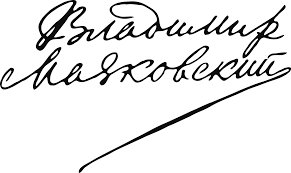 Владимир
Маяковский